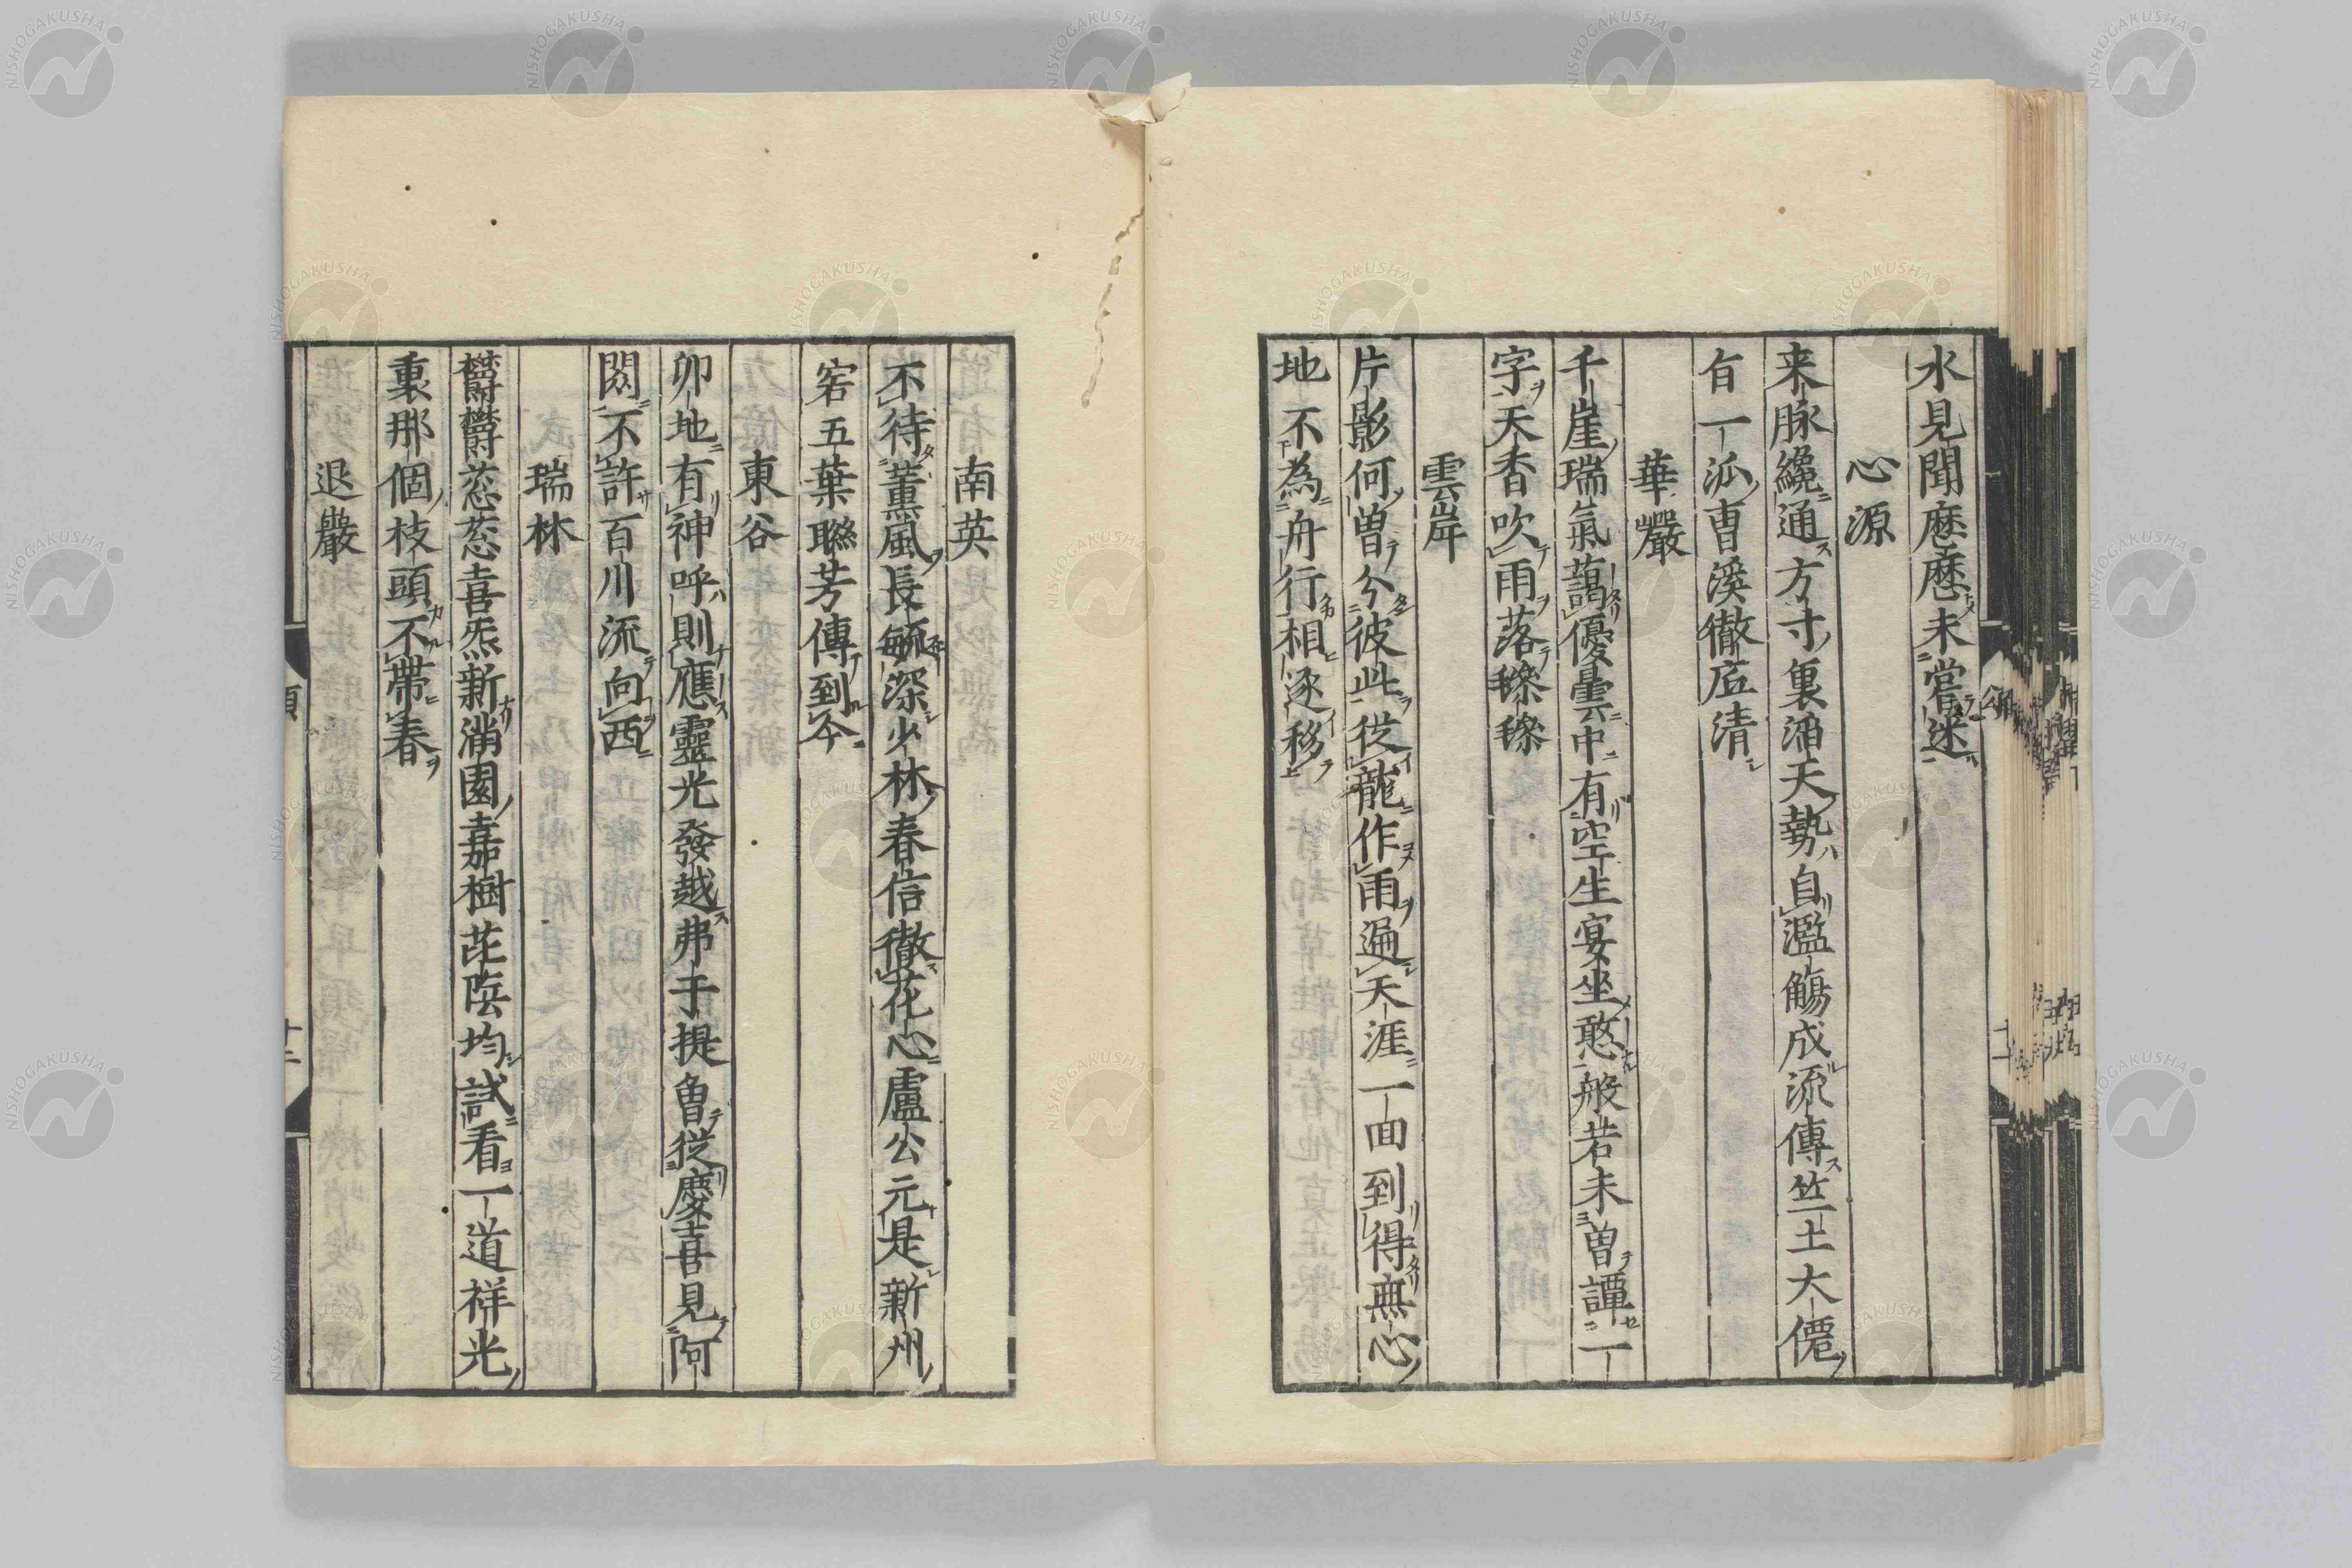 水見聞歷歷未嘗迷
心源
来脉纔通方寸裏滔天勢自濫觴成流傳竺土大僊
有一派曺溪徹底清
華嚴
千崖瑞氣藹優曇中有空生宴坐憨般若未曽譚一
字天香吹雨落毿毿
雲岸
片影何曽分彼此従龍作雨遍天涯一面到得無心
地不為舟行相逐移
南英
不待薫風長毓深少林春信徹花心盧公元是新州
宕五葉聮芳傳到今
東谷
卯地有神呼則應靈光發越弗于提曽従慶喜見阿
閦不許百川流向西
瑞林
欝欝葱葱喜炁新滿園嘉樹茈蔭均試看一道祥光
裏那個枝頭不帯春
退巖
頌
十二